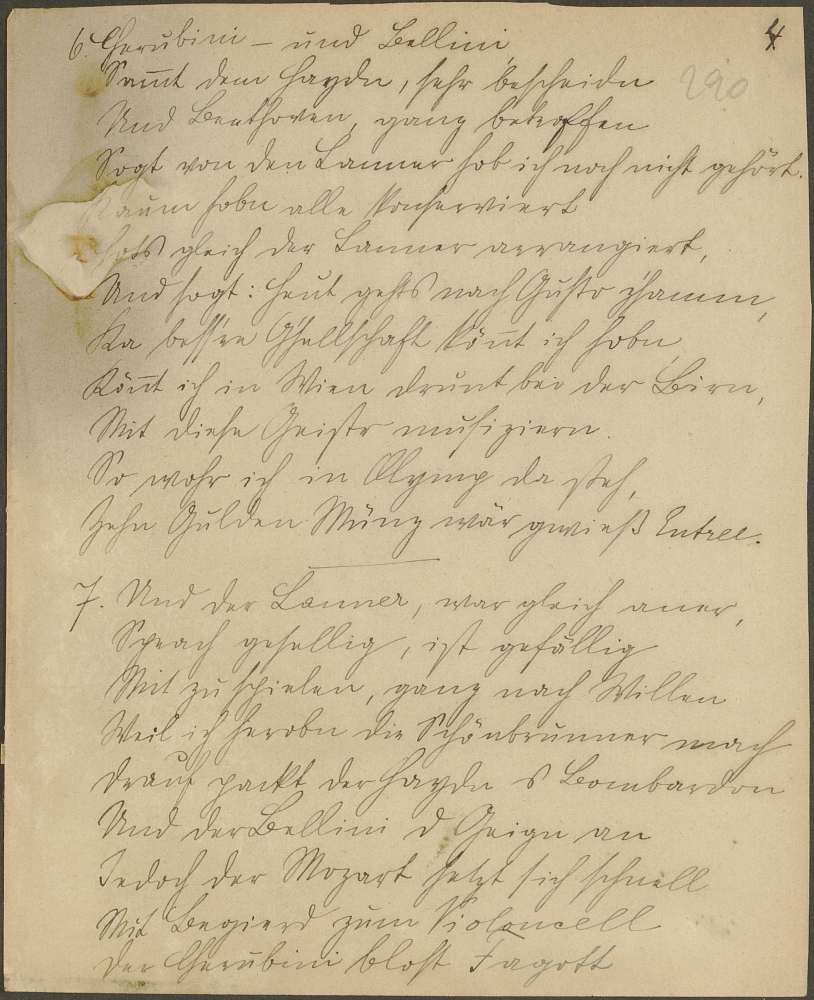 4
290
6. Cherubini – und Bellini
Sam̅t dem Haydn, sehr bescheidn
Und Beethoven, ganz betroffen
Sogt von den Lanner hob ich noch nicht gehört.
Kaum hobn alle konserviert
hots gleich der Lanner arrangiert,
Und sogt: heut gehts nach Gusto z'samm,
Ka bess're G'sellschaft kön̅t ich hobn
Kön̅t ich in Wien drunt bei der Birn,
Mit diese Geistr musiziern.
So wohr ich in Olymp da steh,
Zehn Gulden Münz wär gwieß Entree.
7. Und der Lanner, war gleich aner,
Sprach gesellig, ist gefällig
Mit zu spielen, ganz nach Willen
Weil ich herobn die Schönbrunner mach
Drauf packt der Haydn s Bombardon
Und der Bellini d Geign an
Jedoch der Mozart setzt sich schnell
Mit Begierd zum Violoncell
Der Cherubini blost Fagott